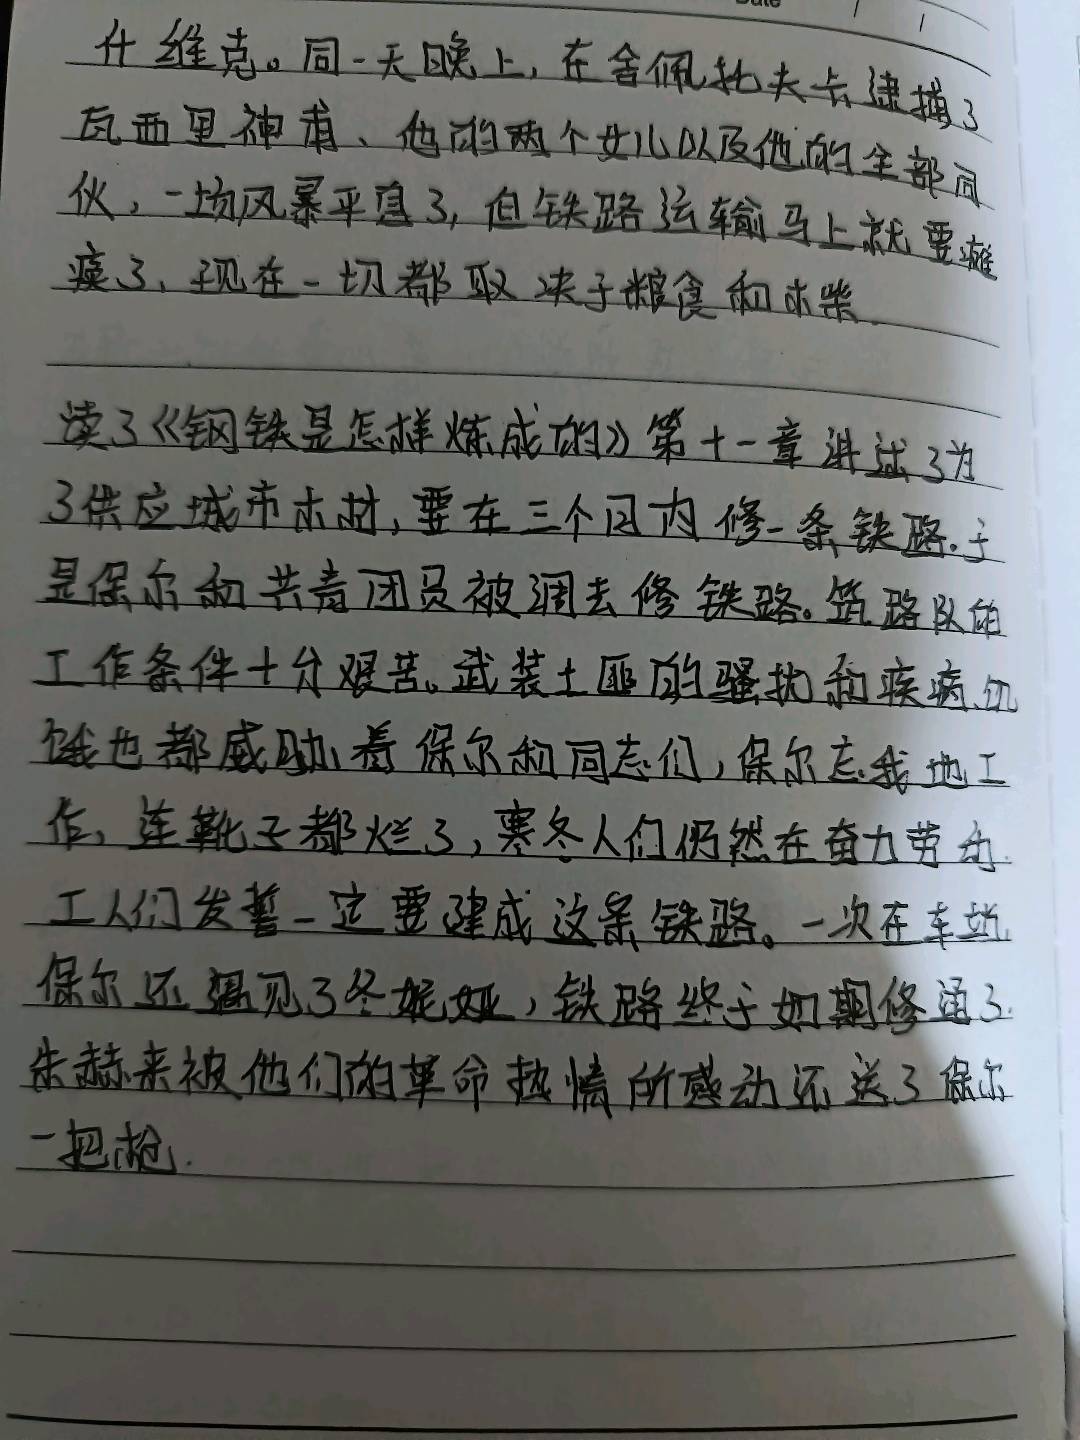 Date / /
什维克。同一天晚上，在舍佩托夫卡逮捕了
瓦西里神甫、他的两个女儿以及他的全部同
伙，一场风暴平息了，但铁路运输马上就要瘫
痪了、现在一切都取决于粮食和木柴.
读了《钢铁是怎样炼成的》第十一章讲述了为
了供应城市木材，要在三个月内修一条铁路.于
是保尔和共青团员被调去修铁路。筑路队的
工作条件十分艰苦。武装土匪的骚扰和疾病、饥
饿也都威胁着保尔和同志们，保尔忘我地工
作，连靴子都烂了，寒冬人们仍然在奋力劳动.
工人们发誓一定要建成这条铁路。一次在车站，
保尔还遇见了冬妮娅，铁路终于如期修通了.
朱赫来被他们的革命热情所感动还送了保尔
一把枪.